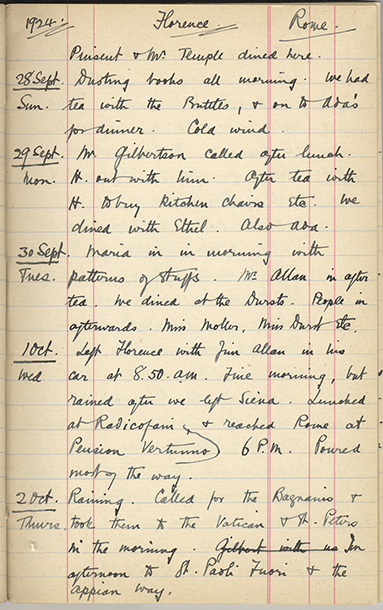 1924. Florence. Rome.
Pinsent & Mr. Temple dined here.
28 Sept. Dusting books all morning. We had
Sun. tea with the Buttles, & on to Ada's
for dinner. Cold wind.
29 Sept. Mr. Gilbertson called after lunch.
Mon. H. out with him. After tea with
H. to buy kitchen chairs etc. We
dined with Ethel. Also Ada.
30 Sept. Maria in in morning with
Tues. patterns of stuffs. Mr. Allan in after
tea. We dined at the Dursts. People in
afterwards. Miss Miss Durst etc.
1 Oct. Left Florence with Jim Allan in his
Wed car at 8.50. a.m. Fine morning, but
rained after we left Siena. Lunched
at Radicofani, & reached Rome at
Pension 6 P.M. Poured
most of the way.
2 Oct. Raining. Called for the &
Thurs. took them to the Vatican & St. Peters
in the morning. Gilbert with us In
afternoon to St. Paoli Fuori & the
Appian Way.